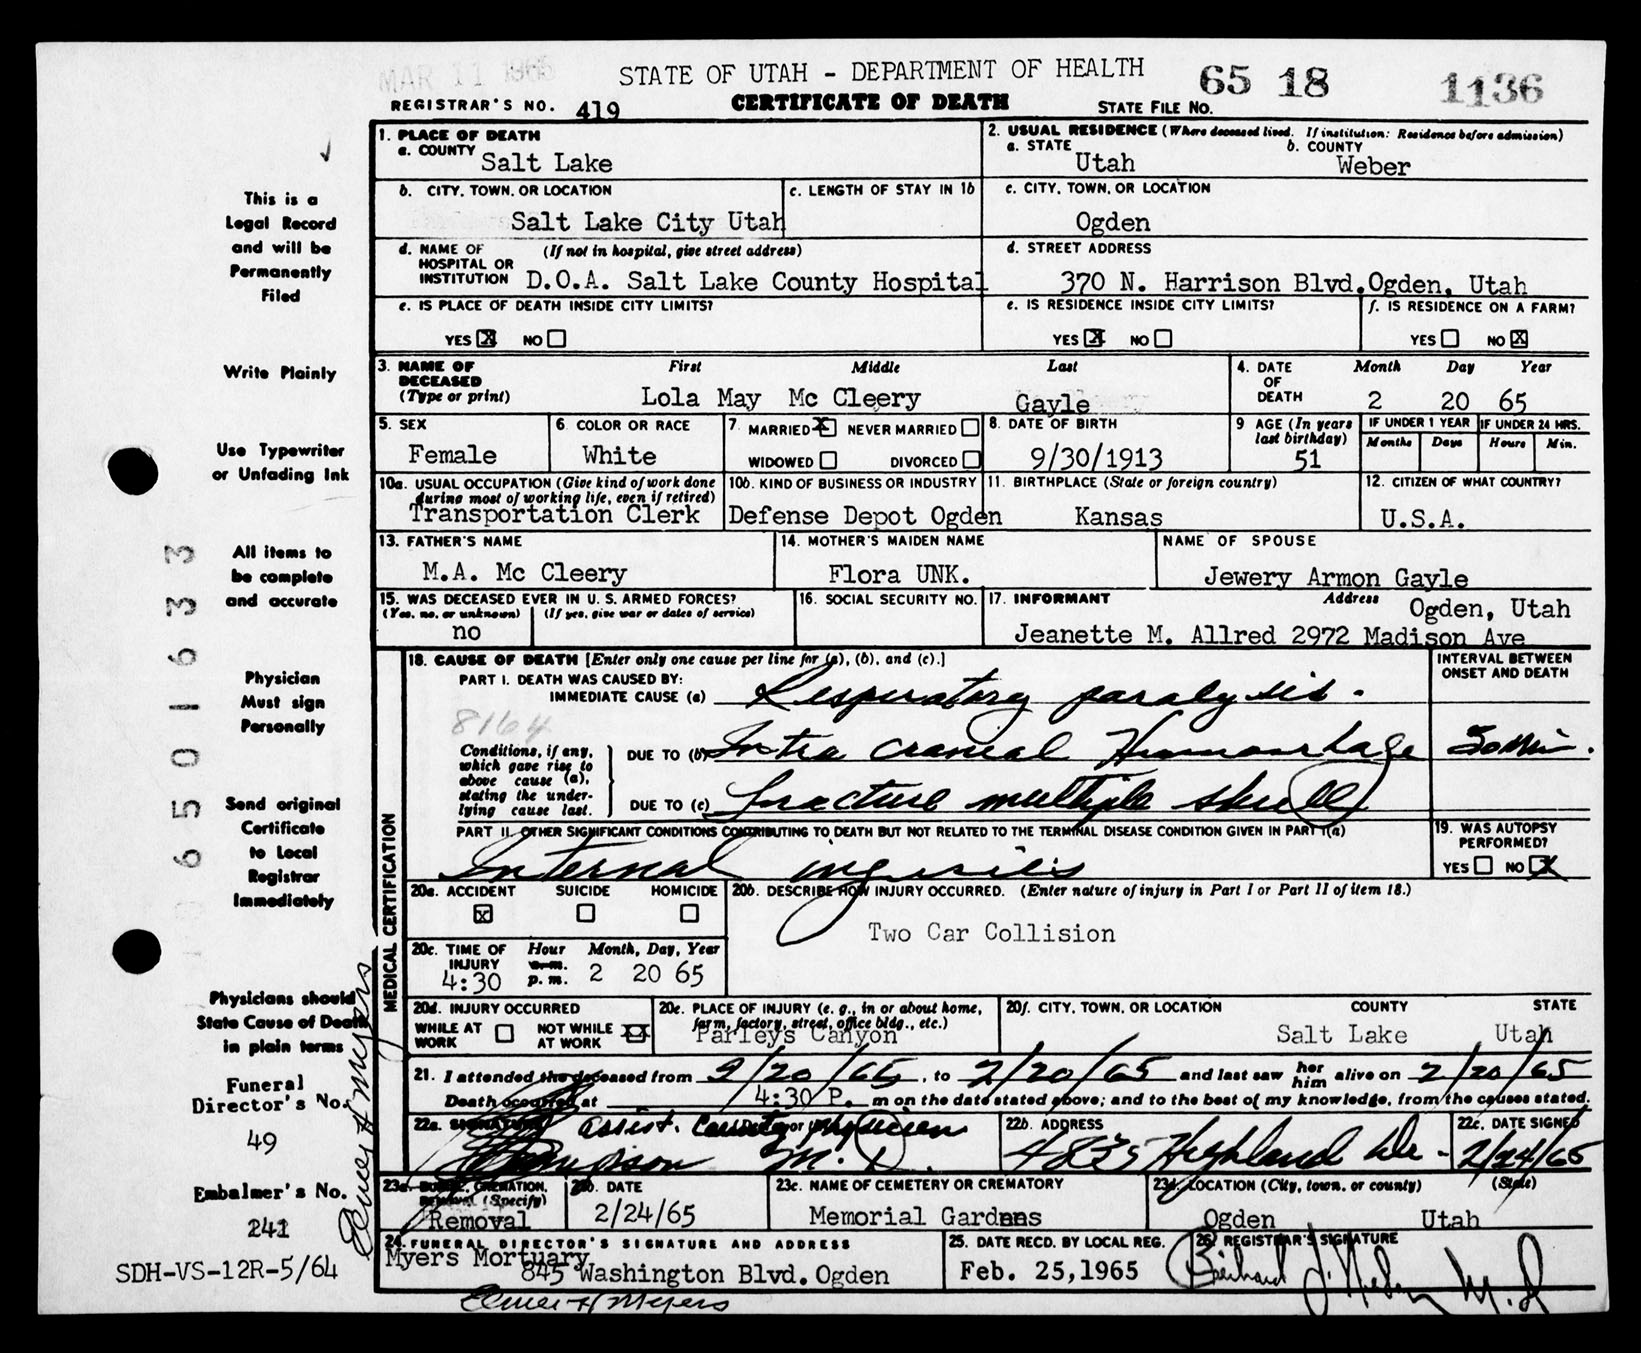 MAR 11 1965
STATE OF UTAH - DEPARTMENT OF HEALTH
65 18 1136
REGISTRAR'S NO. 419
CERTIFICATE OF DEATH
STATE FILE NO.
1. PLACE OF DEATH
a. COUNTY
Salt Lake
2. USUAL RESIDENCE (Where deceased lived. If institution: Residence before admission)
a. STATE
Utah
b. COUNTY
Weber
b. CITY, TOWN, OR LOCATION
Salt Lake City Utah
c. LENGTH OF STAY IN 1b
c. CITY, TOWN, OR LOCATION
Ogden
d. NAME OF HOSPITAL OR INSTITUTION
(If not in hospital, give street address)
D.O.A. Salt Lake County Hospital
d. STREET ADDRESS
370 N. Harrison Blvd. Ogden, Utah
e. IS PLACE OF DEATH INSIDE CITY LIMITS?
YES X NO
e. IS RESIDENCE INSIDE CITY LIMITS?
YES X NO
f. IS RESIDENCE ON A FARM?
YES NO X
3. NAME OF DECEASED (Type or print)
First Middle Last
Lola May Mc Cleery Gayle
4. DATE OF DEATH
Month Day Year
2 20 65
5. SEX
Female
6. COLOR OR RACE
White
7. MARRIED X NEVER MARRIED
WIDOWED DIVORCED
8. DATE OF BIRTH
9/30/1913
9 AGE (In years last birthday)
51
IF UNDER 1 YEAR
Months Days
IF UNDER 24 HRS.
Hours Min.
10a. USUAL OCCUPATION (Give kind of work done during most of working life, even if retired)
Transportation Clerk
10b. KIND OF BUSINESS OR INDUSTRY
Defense Depot Ogden
11. BIRTHPLACE (State or foreign country)
Kansas
12. CITIZEN OF WHAT COUNTRY?
U.S.A.
13. FATHER'S NAME
M.A. Mc Cleery
14. MOTHER'S MAIDEN NAME
Flora UNK.
NAME OF SPOUSE
Jewery Armon Gayle
15. WAS DECEASED EVER IN U. S. ARMED FORCES?
(Yes, no, or unknown) (If yes, give war or dates of service)
no
16. SOCIAL SECURITY NO.
17. INFORMANT Address
Ogden, Utah
Jeanette M. Allred 2972 Madison Ave
18. CAUSE OF DEATH [Enter only one cause per line for (a), (b), and (c).]
INTERVAL BETWEEN ONSET AND DEATH
PART I. DEATH WAS CAUSED BY:
IMMEDIATE CAUSE (a) Respiratory paralysis.
8164
Conditions, if any, which gave rise to above cause (a), stating the underlying cause last.
DUE TO (b) Intra cranial
DUE TO (c) Fracture multiple skull
PART II. OTHER SIGNIFICANT CONDITIONS CONTRIBUTING TO DEATH BUT NOT RELATED TO THE TERMINAL DISEASE CONDITION GIVEN IN PART I(a)
Internal injuries
19. WAS AUTOPSY PERFORMED?
YES NO X
20a. ACCIDENT SUICIDE HOMICIDE
X
20b. DESCRIBE HOW INJURY OCCURRED. (Enter nature of injury in Part I or Part II of item 18.)
Two Car Collision
20c. TIME OF INJURY
Hour Month, Day, Year
a.m.
p.m.
4:30 2 20 65
20d. INJURY OCCURRED
WHILE AT WORK NOT WHILE AT WORK X
20e. PLACE OF INJURY (e. g., in or about home, farm, factory, street, office bldg., etc.)
Parleys Canyon
20f. CITY, TOWN, OR LOCATION COUNTY STATE
Salt Lake Utah
21. I attended the deceased from 2/20/65, to 2/20/65 and last saw her him alive on 2/20/65
Death occurred at 4:30 P. m on the date stated above; and to the best of my knowledge, from the causes stated.
22a. SIGNATURE
assist. County physician
M.D.
22b. ADDRESS
4835 Highland Dr -
22c. DATE SIGNED
2/24/65
23a. BURIAL, CREMATION, REMOVAL (Specify)
Removal
23b. DATE
2/24/65
23c. NAME OF CEMETERY OR CREMATORY
Memorial Gardens
23d. LOCATION (City, town, or county) (State)
Ogden Utah
24. FUNERAL DIRECTOR'S SIGNATURE AND ADDRESS
Myers Mortuary
845 Washington Blvd. Ogden
Elmer H Myers
25. DATE RECD. BY LOCAL REG.
Feb. 25, 1965
26. REGISTRAR'S SIGNATURE
M.D
MEDICAL CERTIFICATION
This is a
Legal Record
and will be
Permanently
Filed
Write Plainly
Use Typewriter
or Unfading Ink
All items to
be complete
and accurate
Physician
Must sign
Personally
Send original
Certificate
to Local
Registrar
Immediately
Physicians should
State Cause of Death
in plain terms
Funeral
Director's No.
49
Embalmer's No.
241
SDH-VS-12R-5/64
Elmer H Myers
6 5 0 1 6 3 3